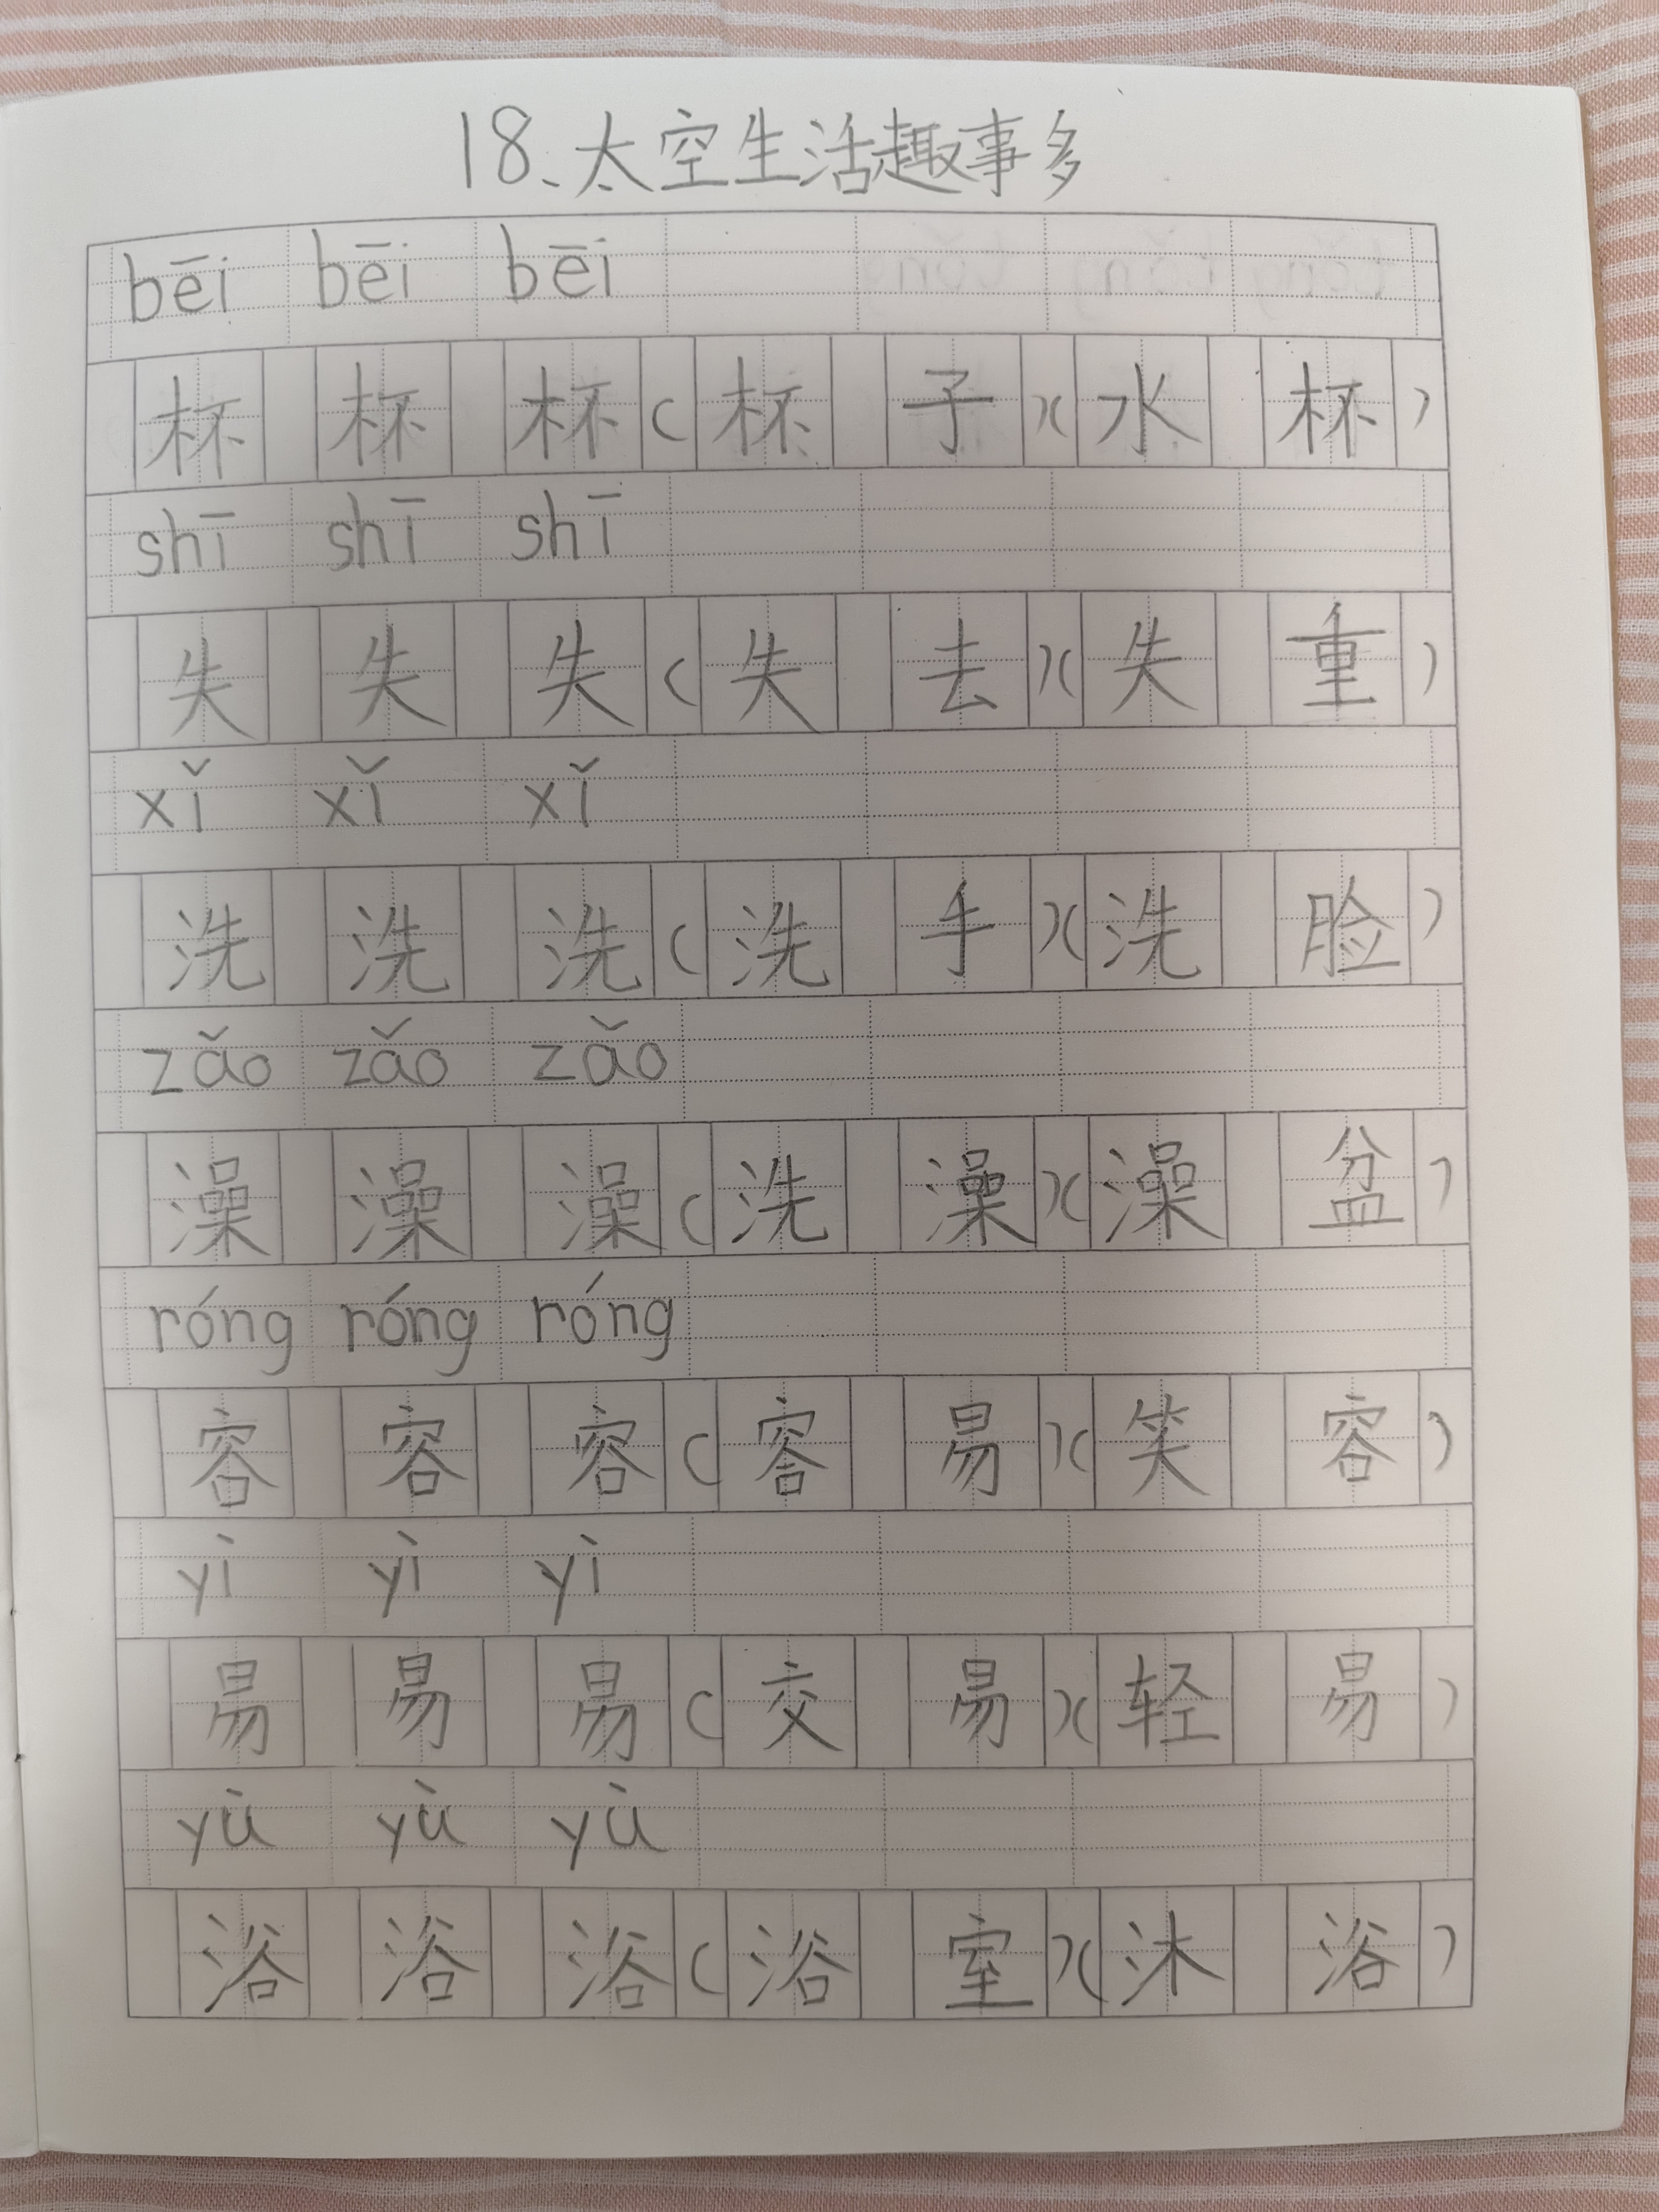 18、太空生活趣事多
bēi bēi bēi
杯 杯 杯 (杯子)(水杯)
shī shī shī
失 失 失 (失去)(失重)
xǐ xǐ xǐ
洗 洗 洗 (洗手)(洗脸)
zǎo zǎo zǎo
澡 澡 澡 (洗澡)(澡盆)
róng róng róng
容 容 容 (容易)(笑容)
yì yì yì
易 易 易 (交易)(轻易)
yù yù yù
浴 浴 浴 (浴室)(沐浴)